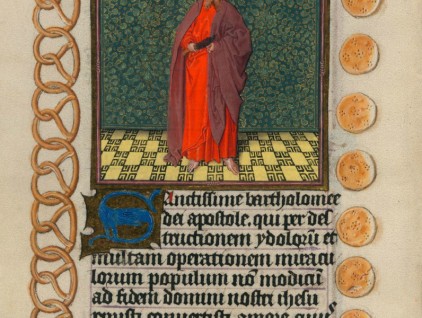 Sanctissime bartholomee
dei apostole. qui per des
tructionem ydolorū et
multam operationem miracu
lorum populum nō modicū
ad fidem domini nostri ihesu
conuertisti amore